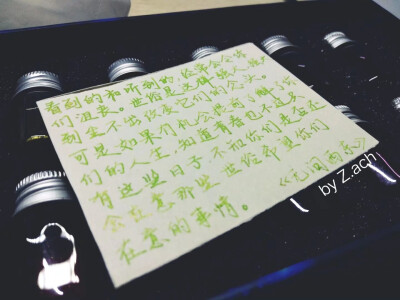 看到的和听到的,经常会令你
们沮丧。世俗是这样强大,强大
到生不出改变它们的念头。
可是如果有机会提前了解了你
们的人生,知道青春也不过只
有这些日子,不知你们是否还
会在意那些世俗希望你们
在意的事情。《无问西东》
by Z.ach